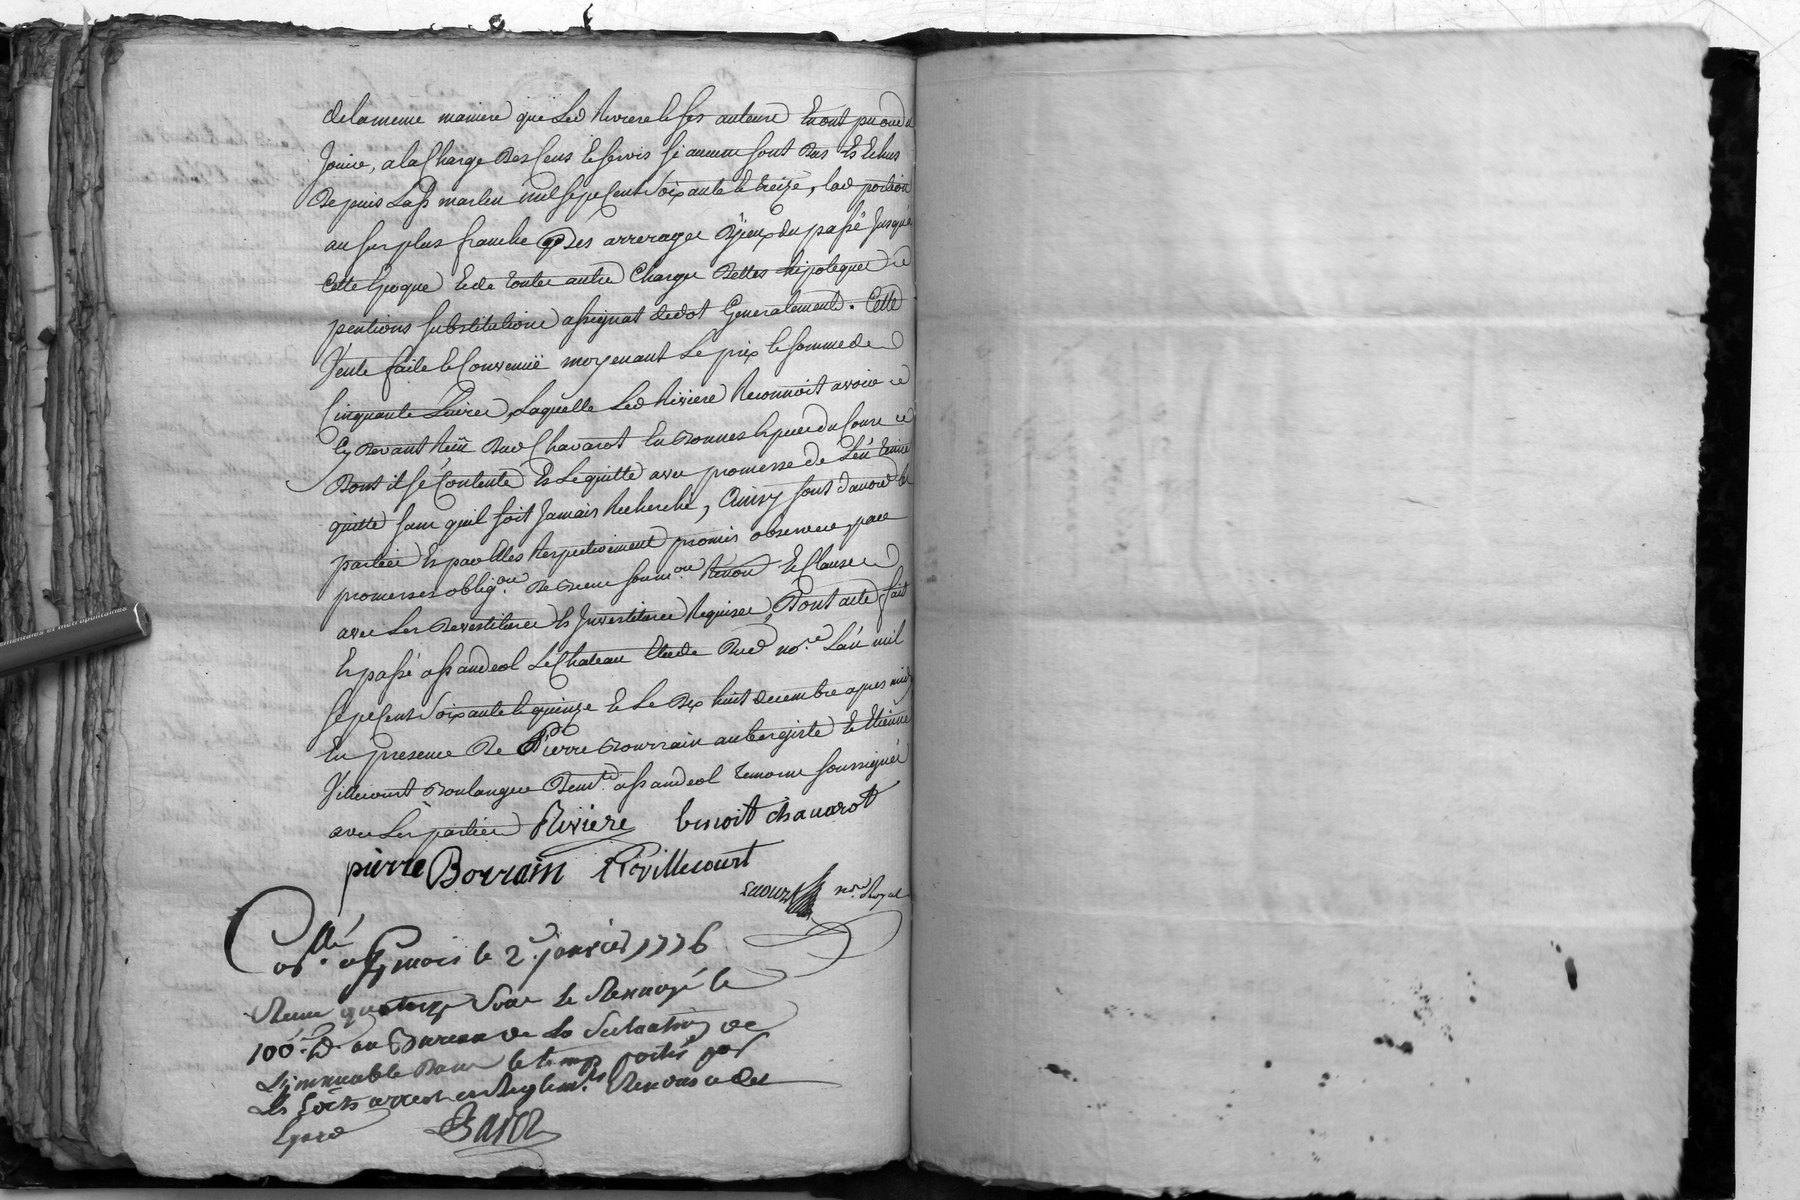 de la meme maniere que led Riviere et ses auteurs en ont pu ou dû
Jouir, a la Charge des Cens et servis si aucuns sont dus et Echus
depuis la st martin mil sept Cent soixante et treize, lad portion
au surplus franche des arrerages d'jceux du passé Jusques
Cette Epoque et de toutes autres Charges dettes hipoteques
pentions substitutions assignat de dot Generalement. Cette
Vente faite et Convenüe moyenant le prix et somme de
Cinquante Livres, Laquelle led Riviere Reconnoit avoir
Cy devant Reçu dud Chavarot En bonnes especes du Cours
dont il se Contente et le quitte avec promesse de l'en tenir
quitte sans quil soit Jamais Recherché, Ainsy sont d'accord les
parties et par Elles Respectivement promis observer par
promesses obligon. de biens soumon. Renon et Clauses
avec les devestitures et Jnvestitures Requises, Dont acte fait
et passé a st andeol le Chateau Etude dud nore. L'an mil
sept Cent soixante et quinze et le dix huit decembre apres midy
En presence de Pierre Bourrain aubergiste et Etienne
Villecourt Boulanger demts. a st andeol temoins soussignés
avec les parties Riviere benoit chavarot
pierre Borrain Villecourt
nore Royal
Collé a Gi le 2 janvier 1776
Reçu quatorze sous et Renvoyé le
100e. D. au Bureau de la situation de
L'jmmeuble dans le temps porté par
les Edits arrest et Reglemts. Rendus a cet
Egard